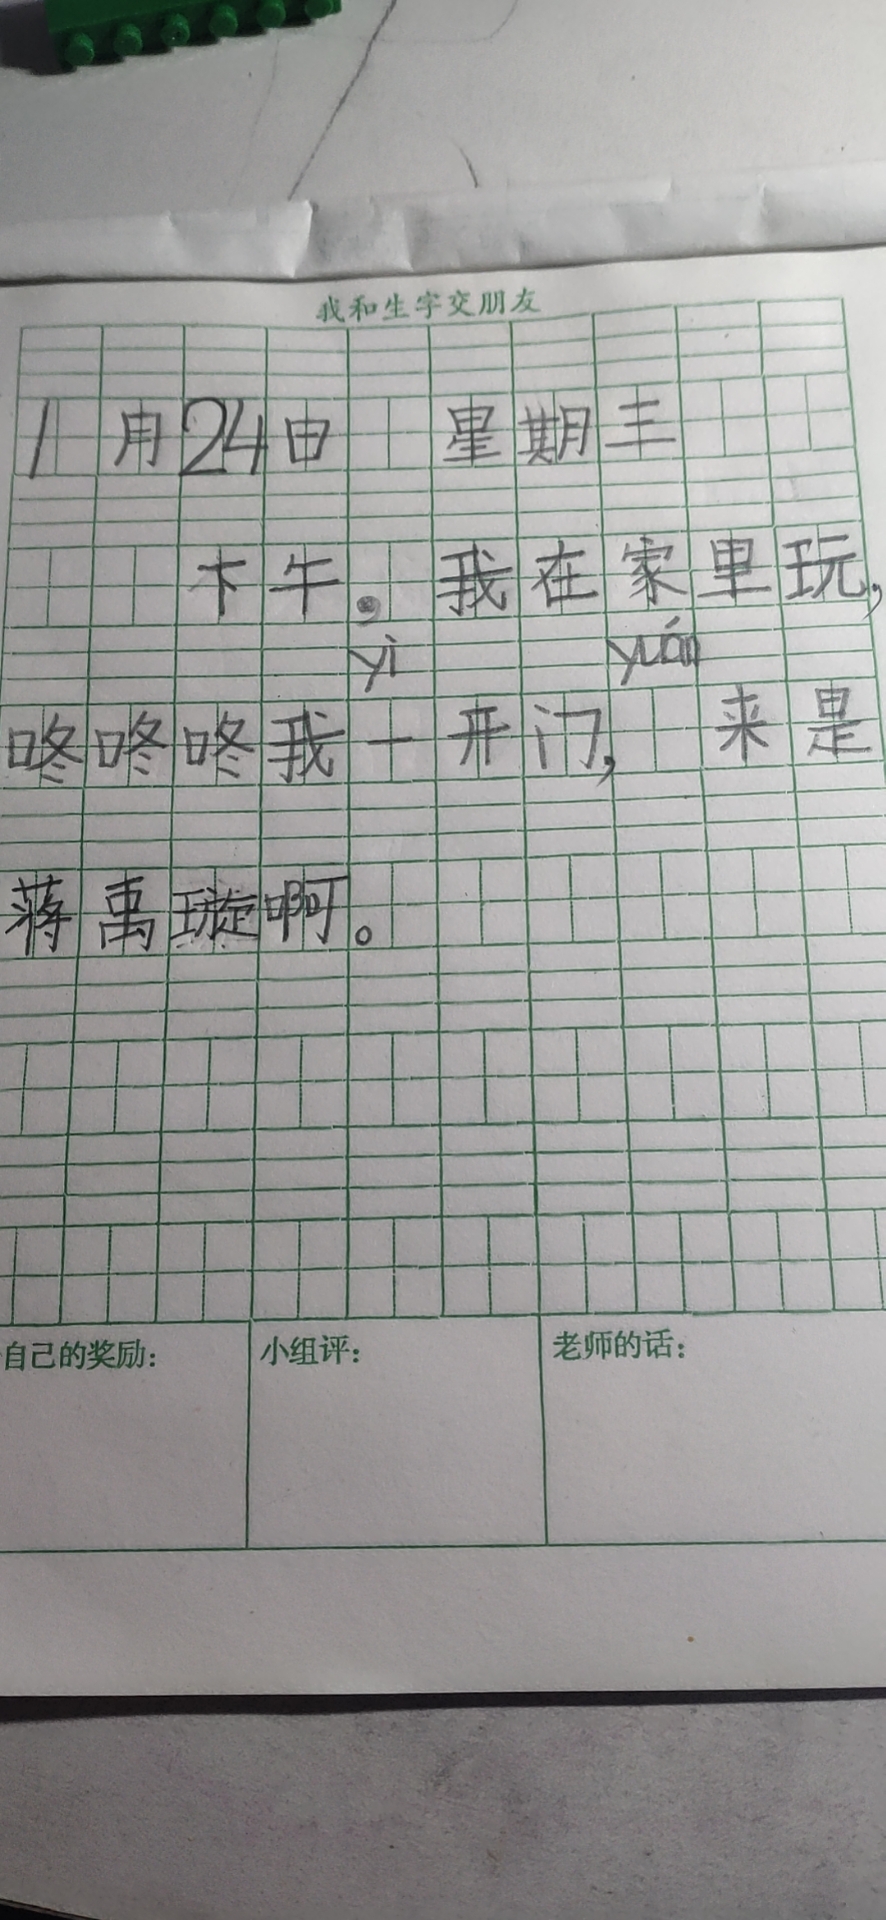 我和生字交朋友
1月24日 星期三
下午。我在家里玩,
yì yuán
咚咚咚我一开门, 来是
蒋禹璇啊。
自己的奖励: 小组评: 老师的话: